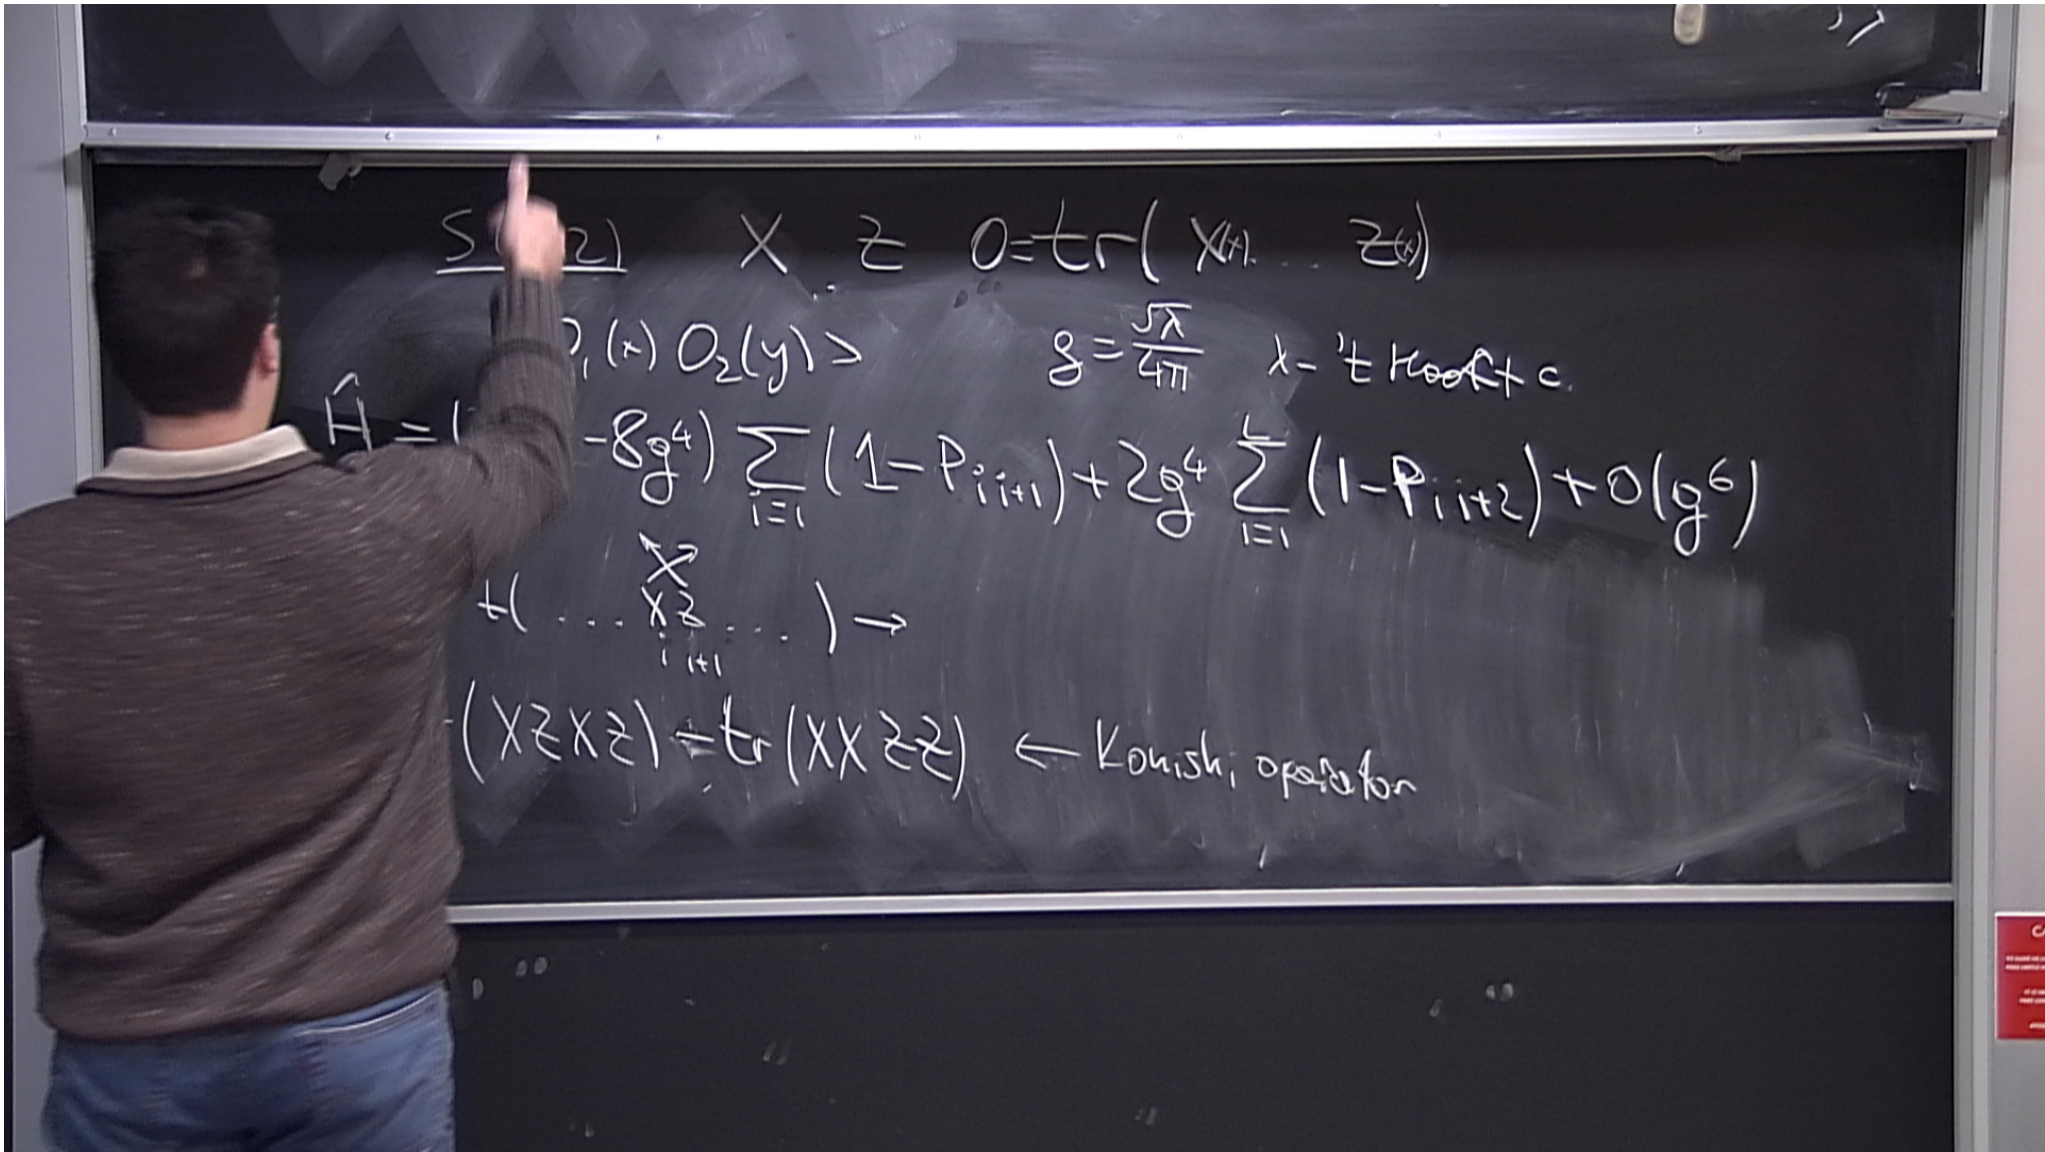 S 2) X Z O=tr( X(x). .. Z(x))
(x) O₂(y)> g = √λ/4π λ - 't Hooft c.
Ĥ = ( -8g⁴) Σ_{i=1} (1-P_{i i+1}) + 2g⁴ Σ_{i=1}^{L} (1-P_{i i+2}) + O(g⁶)
t( ... XZ ... ) →
i i+1
(XZXZ) - tr(XXZZ) ← Konishi operator